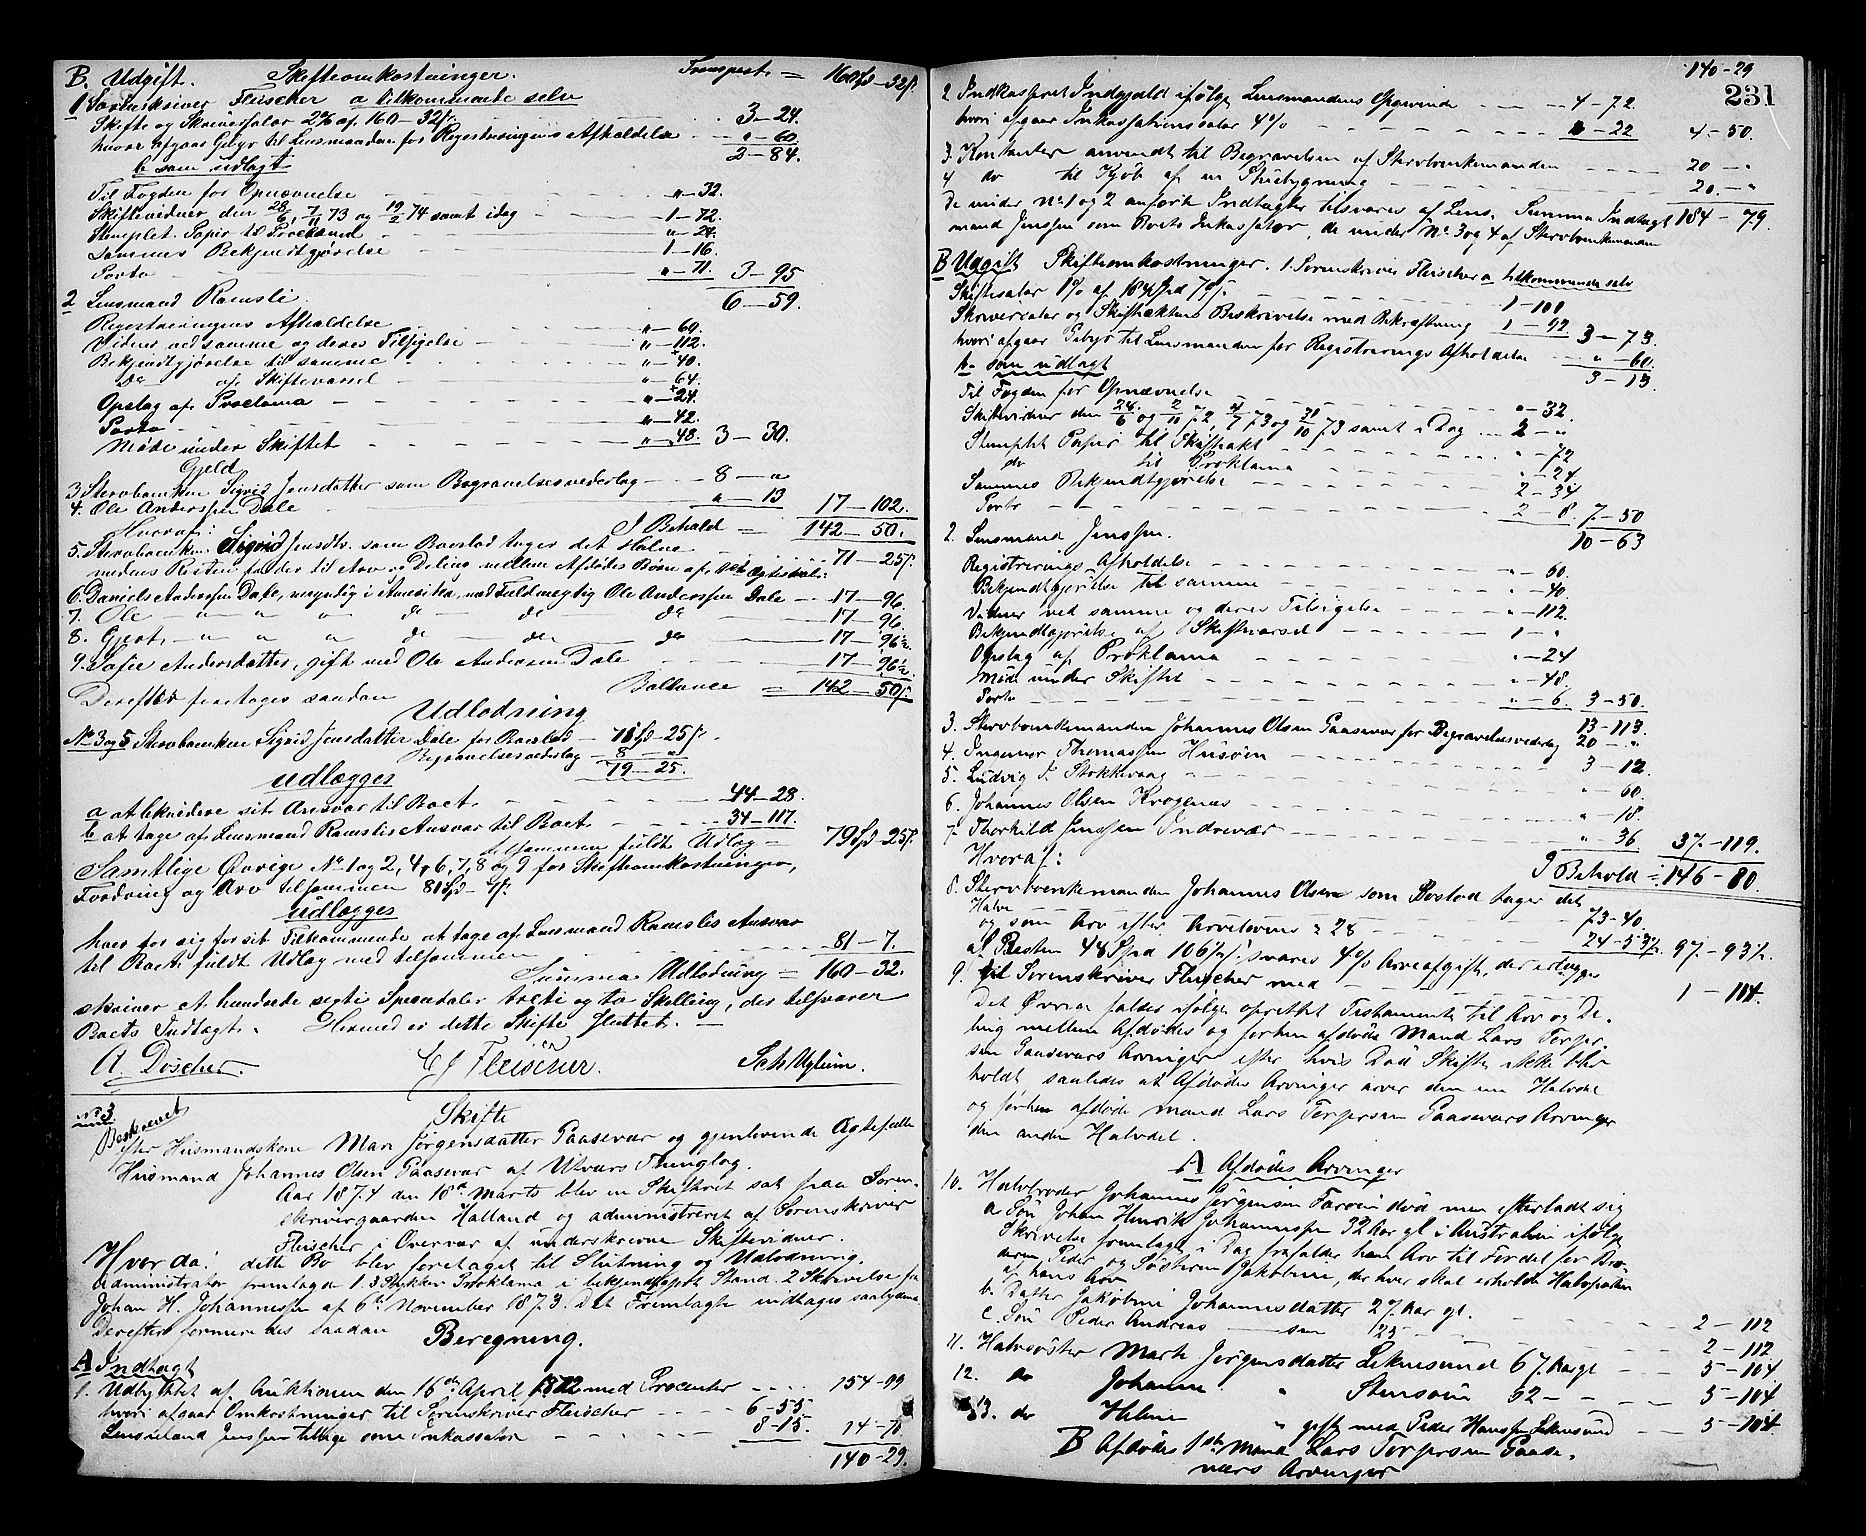 B. Udgift. Skifteomkostninger. Transport = 160Spd-32s.
1 Sorenskriver Fleischer a tilkommende selv
Skifte og Skriversalær 2% af 160-32s. 3-24.
hvoraf afgaar Gebyr til Lensmanden for Registreringens Afholdelse "-60
2-84.
b som udlagt
Til Fogden for Opnævnelse "-32.
Skiftevidner den 28/6, 7/11 73 og 19/2 74 samt idag 1-72.
Stemplet Papir til Proclama "-24.
Sammes Bekjendtgjørelse 1-16.
Porto "-71. 3-95
6-59.
2 Lensmand Ramsli.
Registreringens Afholdelse "-60.
Vidner ved samme og deres Tilsigelse "-112.
Bekjendtgjørelse til samme "-40.
Do af Skiftevarsel "-64.
Opslag af Proclama "-24.
Porto "-42.
Møde under Skiftet "-48. 3-30.
Gjeld
3 Stervboenken Sigrid Jensdatter som Begravelsesvederlag 8-"
4. Ole Anderssen Dale "-13 17-102.
Hvoraf: I Behold = 142-50.
5. Stervboenken Sigrid Jensdtr. som Boeslod tager det Halve 71-25s.
medens Resten falder til Arv og Deling mellem Afdødes Børn af 1st Ægteskab:
6. Daniels Anderssen Dale, myndig i Amerika, med Fuldmægtig Ole Anderssen Dale 17-96.
7. Ole " " " do do do 17-96.
8. Gjert " " " do do do 17-96½.
9. Sofie Andersdatter, gift med Ole Andersen Dale 17-96½.
Derefter foretages saadan Ballance = 142-50s.
Udlodning
No 3 og 5 Stervboenken Sigrid Jensdatter Dale for Boeslod 71Spd-25s.
Begravelsesvederlag 8-"
79-25.
udlægges
a at likvidere sit Ansvar til Boet 44-28.
b at tage af Lensmand Ramslis Ansvar til Boet 34-117.
tilsammen fuldt Udlæg = 79Spd-25s.
Samtlige Øvrige No 1 og 2, 4, 6, 7, 8 og 9 for Skifteomkostninger,
Fordring og Arv tilsammen 81Spd-7s.
udlægges
hver for sig for sit Tilkommende at tage af Lensmand Ramslis Ansvar
til Boet fuldt Udlæg med tilsammen 81-7.
Summa Udlodning = 160-32.
skriver et hundrede segti Speciedaler treti og to Skilling, der tilsvarer
Boets Indtægt. Hermed er dette Skifte sluttet.
A. Döscher. C J Fleischer.
No 3
Beskrevet
Skifte
efter Husmandskone Mari Jørgensdatter Gaasevær og gjenlevende Ægtefælle
Husmand Johannes Olsen Gaasevær af Utvers Thinglag.
Aar 1874 den 18de Marts blev en Skifteret sat paa Soren-
skrivergaarden Halland og administreret af Sorenskriver
Fleischer i Overvær af underskrevne Skiftevidner.
Hvor da: dette Bo blev foretaget til Slutning og Udlodning.
Administrator fremlagde 1. 3 Stykker Proklama i bekjendtgjort Stand. 2 Skrivelse fra
Johan H. Johannessen af 6te November 1873. Det Fremlagte indtages saalydende
Derefter formeredes saadan Beregning.
A Indtægt
1. Udbyttet af Auktionen den 16de April 1872 med Procenter 154-99
hvori afgaar Omkostninger til Sorenskriver Fleischer 6-55
Lensmand Jenssen tillige som Inkassator 8-15. 14-70
140-29.
140-29
231
2 Indkasseret Indgjæld ifølge Lensmandens Opgivende 4-72.
hvori afgaar Inkassationssalær 4% "-22 4-50.
3. Kontanter anvendt til Begravelsen af Stervboenkemanden 20-"
4 do til Kjøb af en Stuebygning 20.-"
De under No 1 og 2 anførte Indtægter tilsvares af Lens- Summa Indtægt 184-79.
mand Jenssen som Boets Inkassator, de under No 3 og 4 af Stervboenkemanden
B Udgift Skifteomkostninger. 1. Sorenskriver Fleischer a tilkommende selv
Skiftesalær 1% af 184Spd 79s. 1-101
Skriversalær og Skifteaktens Beskrivelse med Bekræftning 1-92 3-73.
hvori afgaar Gebyr til Lensmanden for Registrerings Afholdelse "-60.
b. som udlagt 3-13.
Til Fogden for Opnævnelse "-32.
Skiftevidner den 28/6 og 2/10 72, 4/7 73 og 30/10 73 samt i Dag 2-"
Stemplet Papir til Skifteakt "-72
do til Proklama "-24
Sammes Bekjendtgjørelse 2-34
Porto 2-8. 7-50
2. Lensmand Jenssen. 10-63
Registrerings Afholdelse "-60.
Bekjendtgjørelse til samme "-40.
Vidner ved samme og deres Tilsigelse "-112.
Bekjendtgjørelse af Skiftevarsel 1-"
Opslag af Proklama "-24
Møde under Skiftet "-48.
Porto "-6. 3-50
13-113.
3. Stervboenkemanden Johannes Olsen Gaasevær for Begravelsesvederlag 20-"
4. Ingemor Thomassen Husøen 3-12.
5. Ludvig J. Stokkevaag "-60.
6. Johannes Olsen Krogenes "-18.
7. Thorkild Jenssen Indrevær "-36 37-119.
Hvoraf: I Behold = 146-80.
8. Stervboenkemanden Johannes Olsen som Boslod tager det
Halve 73-40.
og som Arv efter Arvelovens § 28 24-53½. 97-93½.
af Resten 48 Spd 106½s. svares 4% Arveafgift, der udlægges
9. til Sorenskriver Fleischer med 1-114.
Det Øvrige falder ifølge oprettet Testamente til Arv og De-
ling mellem Afdødes og forhen afdøde Mand Lars Torger-
sen Gaaseværs Arvinger efter hvis Død Skifte ikke blev
holdt, saaledes at Afdødes Arvinger arver den ene Halvdel
og forhen afdøde mand Lars Torgersen Gaaseværs Arvinger
den anden Halvdel.
A Afdødes Arvinger
10. Halvbroder Johannes Jørgensen Færøen død men efterladt sig
a. Søn Johan Henrik Johannessen 32 Aar gl. i Australien ifølge
Skrivelse fremlagt i Dag frafalder han Arv til Fordel for Bro-
deren Peder og Søsteren Jakobine, der hver skal erholde Halvparten
af hans Arv
b. Datter Jakobine Johannesdatter 27. Aar gl. 2-112
c. Søn Peder Andreas sen 25 2-112
11. Halvsøster Marte Jørgensdatter Leknesund 67. Aar gl 5-104
12. do Johanne " Stensøen 62 5-104
13. do Heline " gift med Peder Hanssen Leknesund 5-104
B Afdødes 1ste Mand Lars Torgersen Gaase-
værs Arvinger